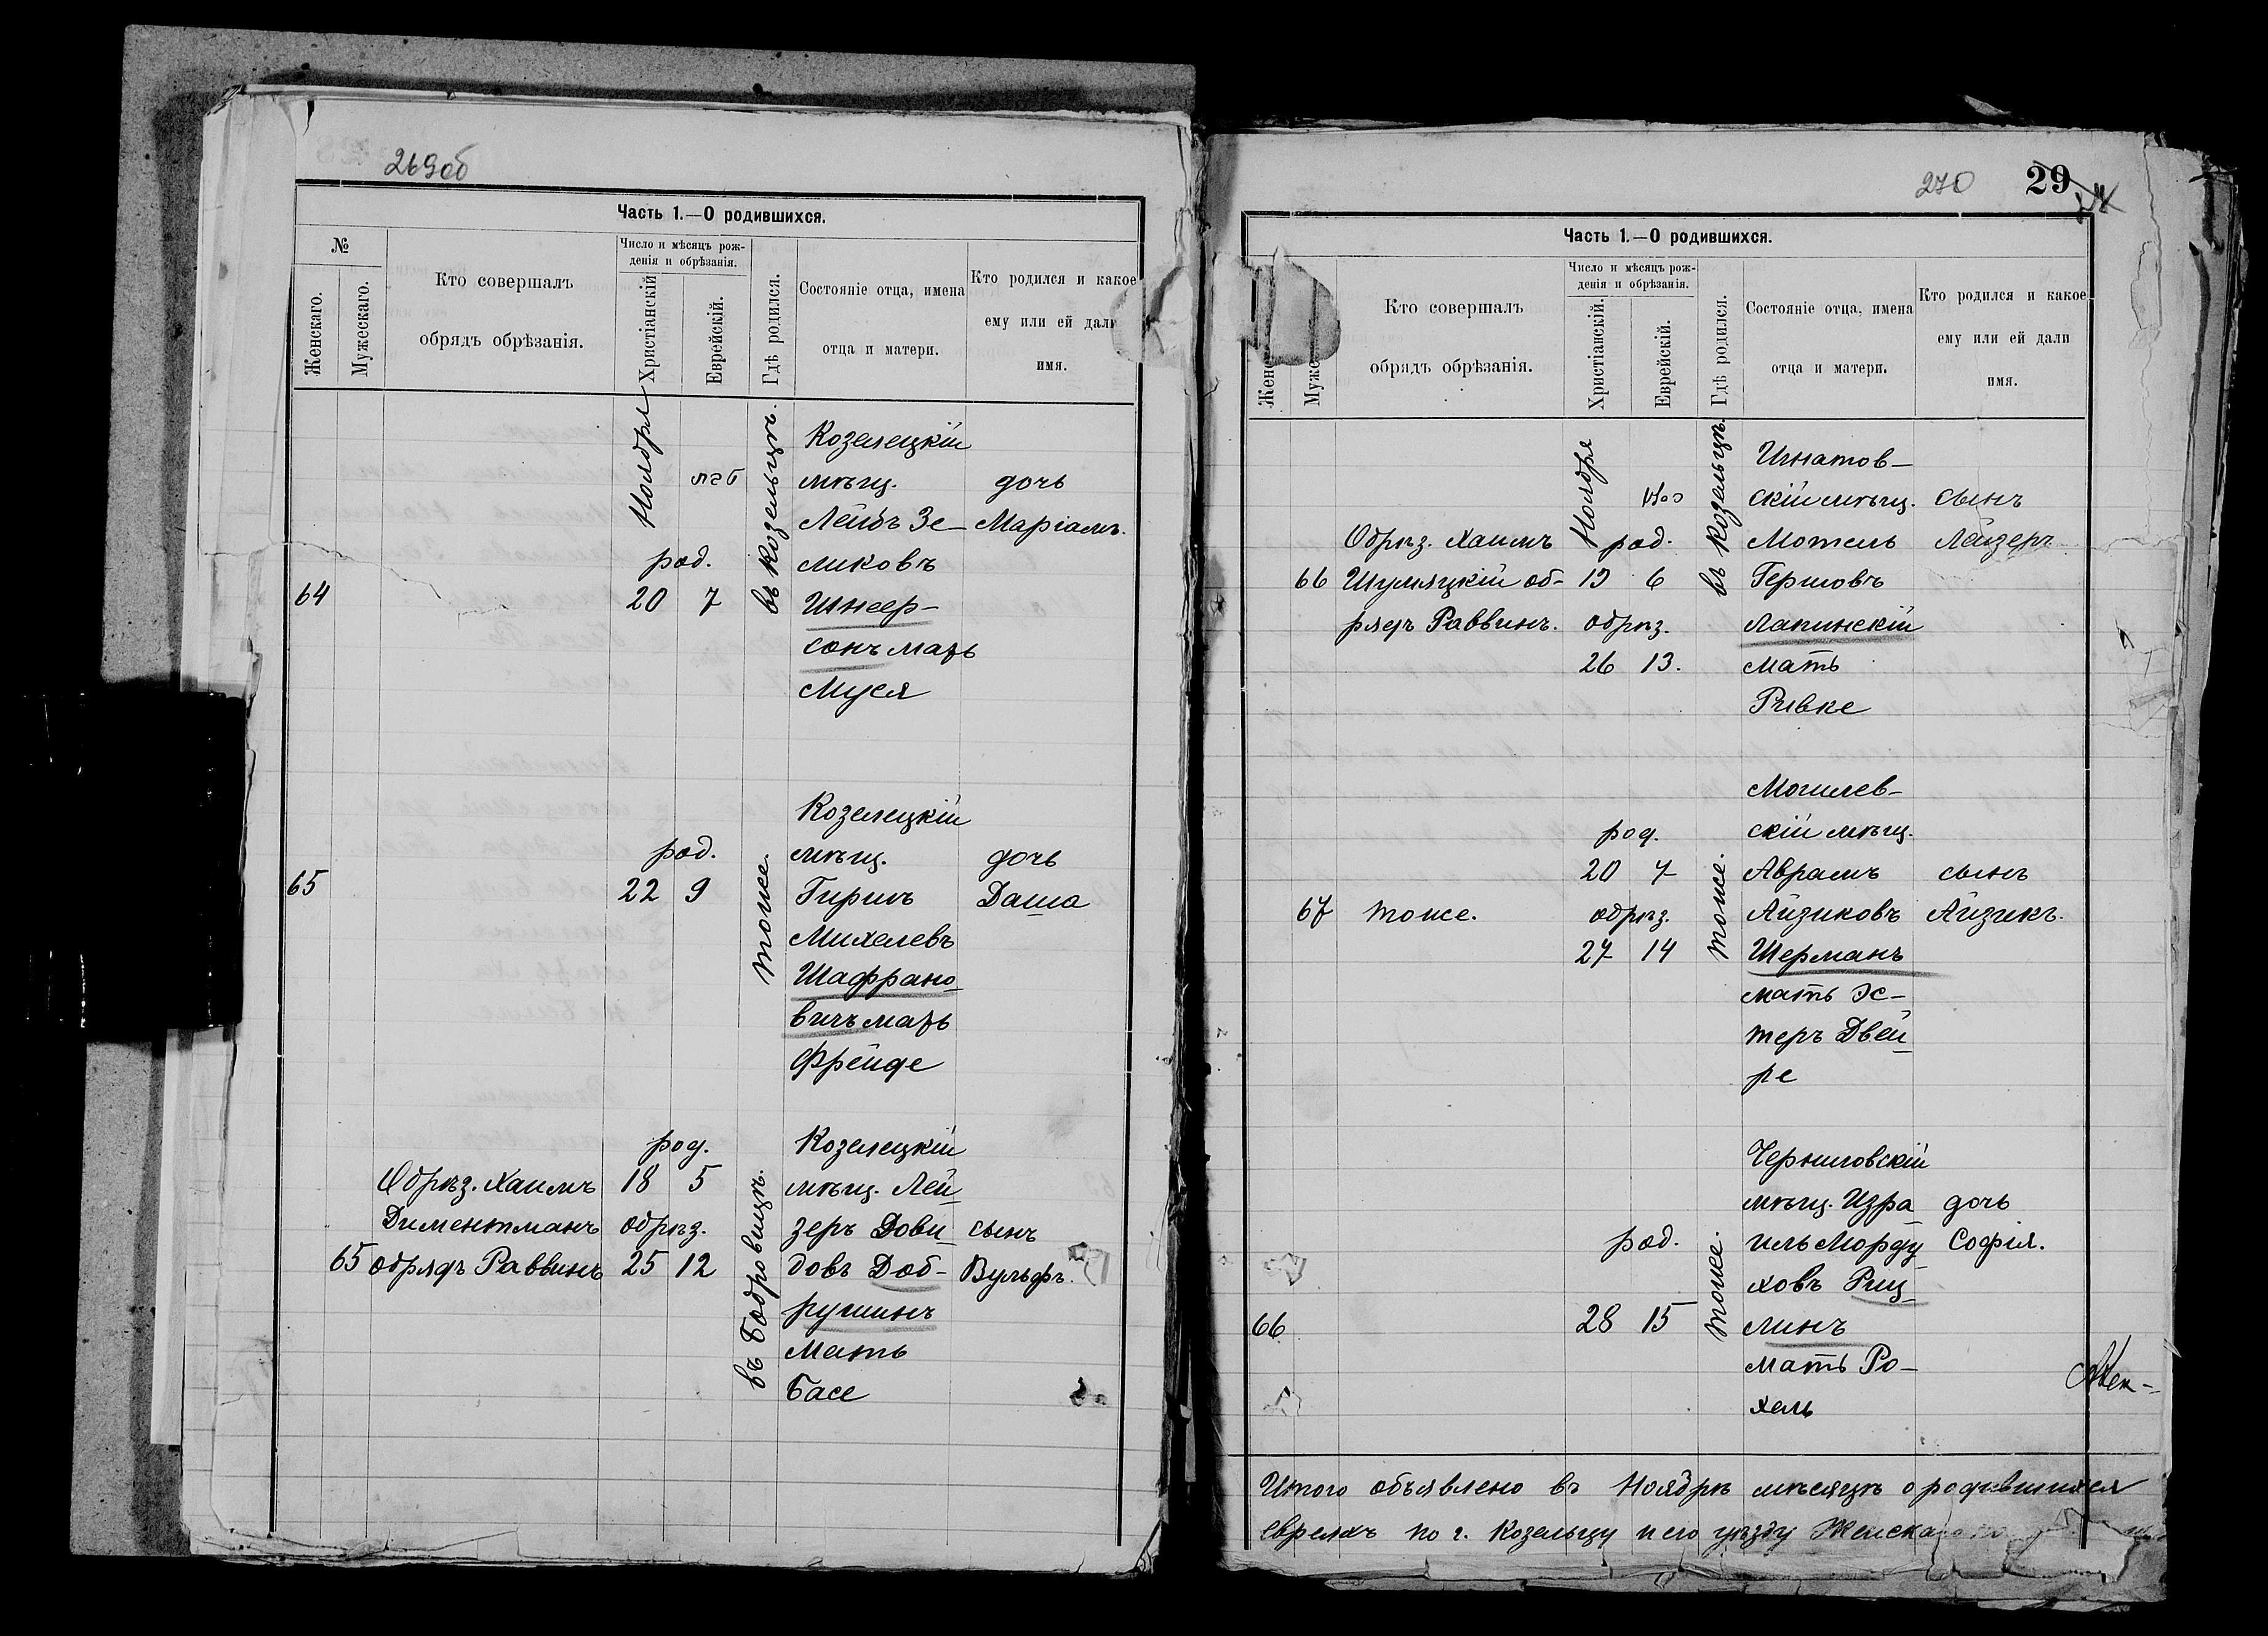 269об
Часть 1.—О родившихся.
№
Женскаго.
Мужескаго.
Кто совершалъ
обрядъ обрѣзанія.
Число и мѣсяцъ рож-
денія и обрѣзанія.
Христіанскій
Еврейскій.
Гдѣ родился.
Состояніе отца, имена
отца и матери.
Кто родился и какое
ему или ей дали
имя.
64
Ноября
род.
20 7
въ Козельцѣ.
Козелецкій
мѣщ.
Лейбъ Зе-
ликовъ
Шнеер-
сонъ мать
Муся
дочь
Маріамъ.
65
род.
22 9
тоже.
Козелецкій
мѣщ.
Гиршъ
Михелевъ
Шафрано-
вичъ мать
Фрейде
дочь
Даша
65
Обрѣз. Хаимъ
Диментманъ
обрядъ Раввинъ
род.
18 5
обрѣз.
25 12
въ Бобровицѣ.
Козелецкій
мѣщ. Лей-
зеръ Дови-
довъ Доб-
рушинъ
Мать
Басе
сынъ
Вульфъ.
270
29
Часть 1.—О родившихся.
Женс
Муже
Кто совершалъ
обрядъ обрѣзанія.
Число и мѣсяцъ рож-
денія и обрѣзанія.
Христіанскій.
Еврейскій.
Гдѣ родился.
Состояніе отца, имена
отца и матери.
Кто родился и какое
ему или ей дали
имя.
66
Обрѣз. Хаимъ
Шумяцкій об-
рядъ Раввинъ.
Ноября
род.
19 6
обрѣз.
26 13.
въ Козельцѣ.
Игнатов-
скій мѣщ.
Мотель
Гершовъ
Лапинскій
мать
Ривке
сынъ
Лейзеръ
67
тоже.
род.
20 7
обрѣз.
27 14
тоже.
Могилев-
скій мѣщ.
Аврамъ
Айзиковъ
Шерманъ
мать Эс-
теръ Двей-
ре
сынъ
Айзикъ.
66
род.
28 15
тоже.
Черниговскій
мѣщ. Изра-
иль Морду-
ховъ Риц-
линъ
мать Ро-
хель
дочь
Софія.
Итого объявлено въ Ноябрѣ мѣсяцѣ о родившихся
евреяхъ по г. Козельцу и его уѣзду Женска